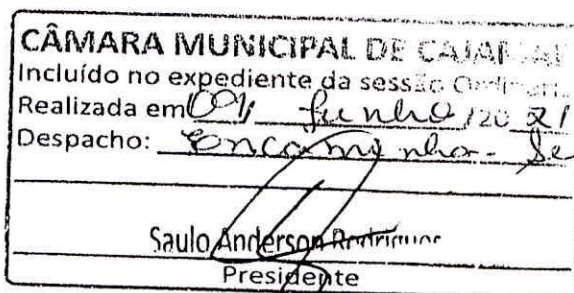 CÂMARA MUNICIPAL DE CAJAMAR
Incluído no expediente da sessão Ordinária
Realizada em 09/ Junho /20 21
Despacho: Encaminha-se
Saulo Anderson Rodrigues
Presidente